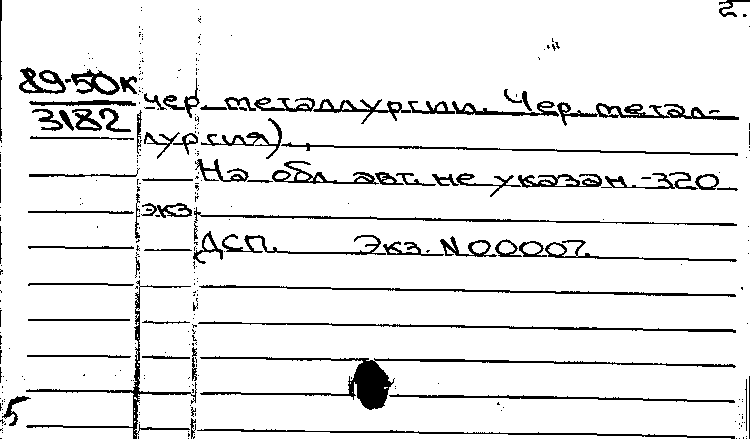 2.
89-50к
3182
чер. металлургии. Чер. метал-
лургия).,
На обл. авт. не указан. -320
экз.
ДСП. Экз. N 00007.
5